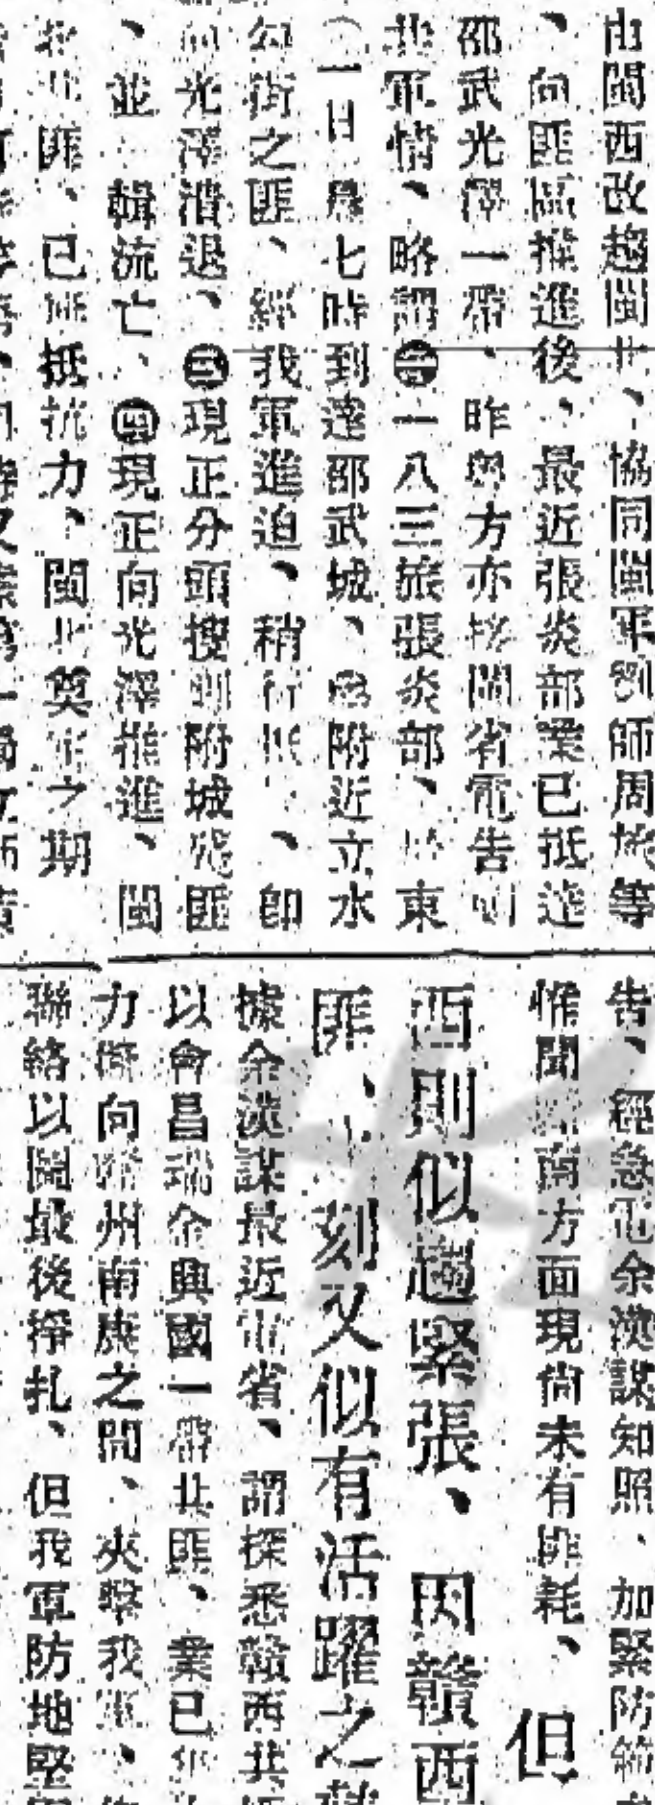 由閩西改趨閩北、協同閩軍劉師周旅等
、向匪區推進後、最近張炎部業已抵達
邵武光澤一帶、昨粵方亦接閩省電告
共軍情、略謂㊀一八三旅張炎部、於東
(一日)晨七時到達邵武城、㊁附近立水
勾街之匪、經我軍進迫、稍行抵、即
向光澤潰退、㊂現正分頭搜剿附城殘匪
、並輯流亡、㊃現正向光澤推進、閩
北匪、已無抵抗力、閩北奠定之期
告、經急電余漢謀知照、加緊防範
惟聞南方面現尚未有匪耗、但
西則似趨緊張、因贛西
匪、刻又似有活躍之
據余漢謀最近電省、謂探悉贛西共
以會昌瑞金興國一帶共匪、業已
力衝向贛州南康之間、夾擊我軍、
聯絡以圖最後掙扎、但我軍防地堅